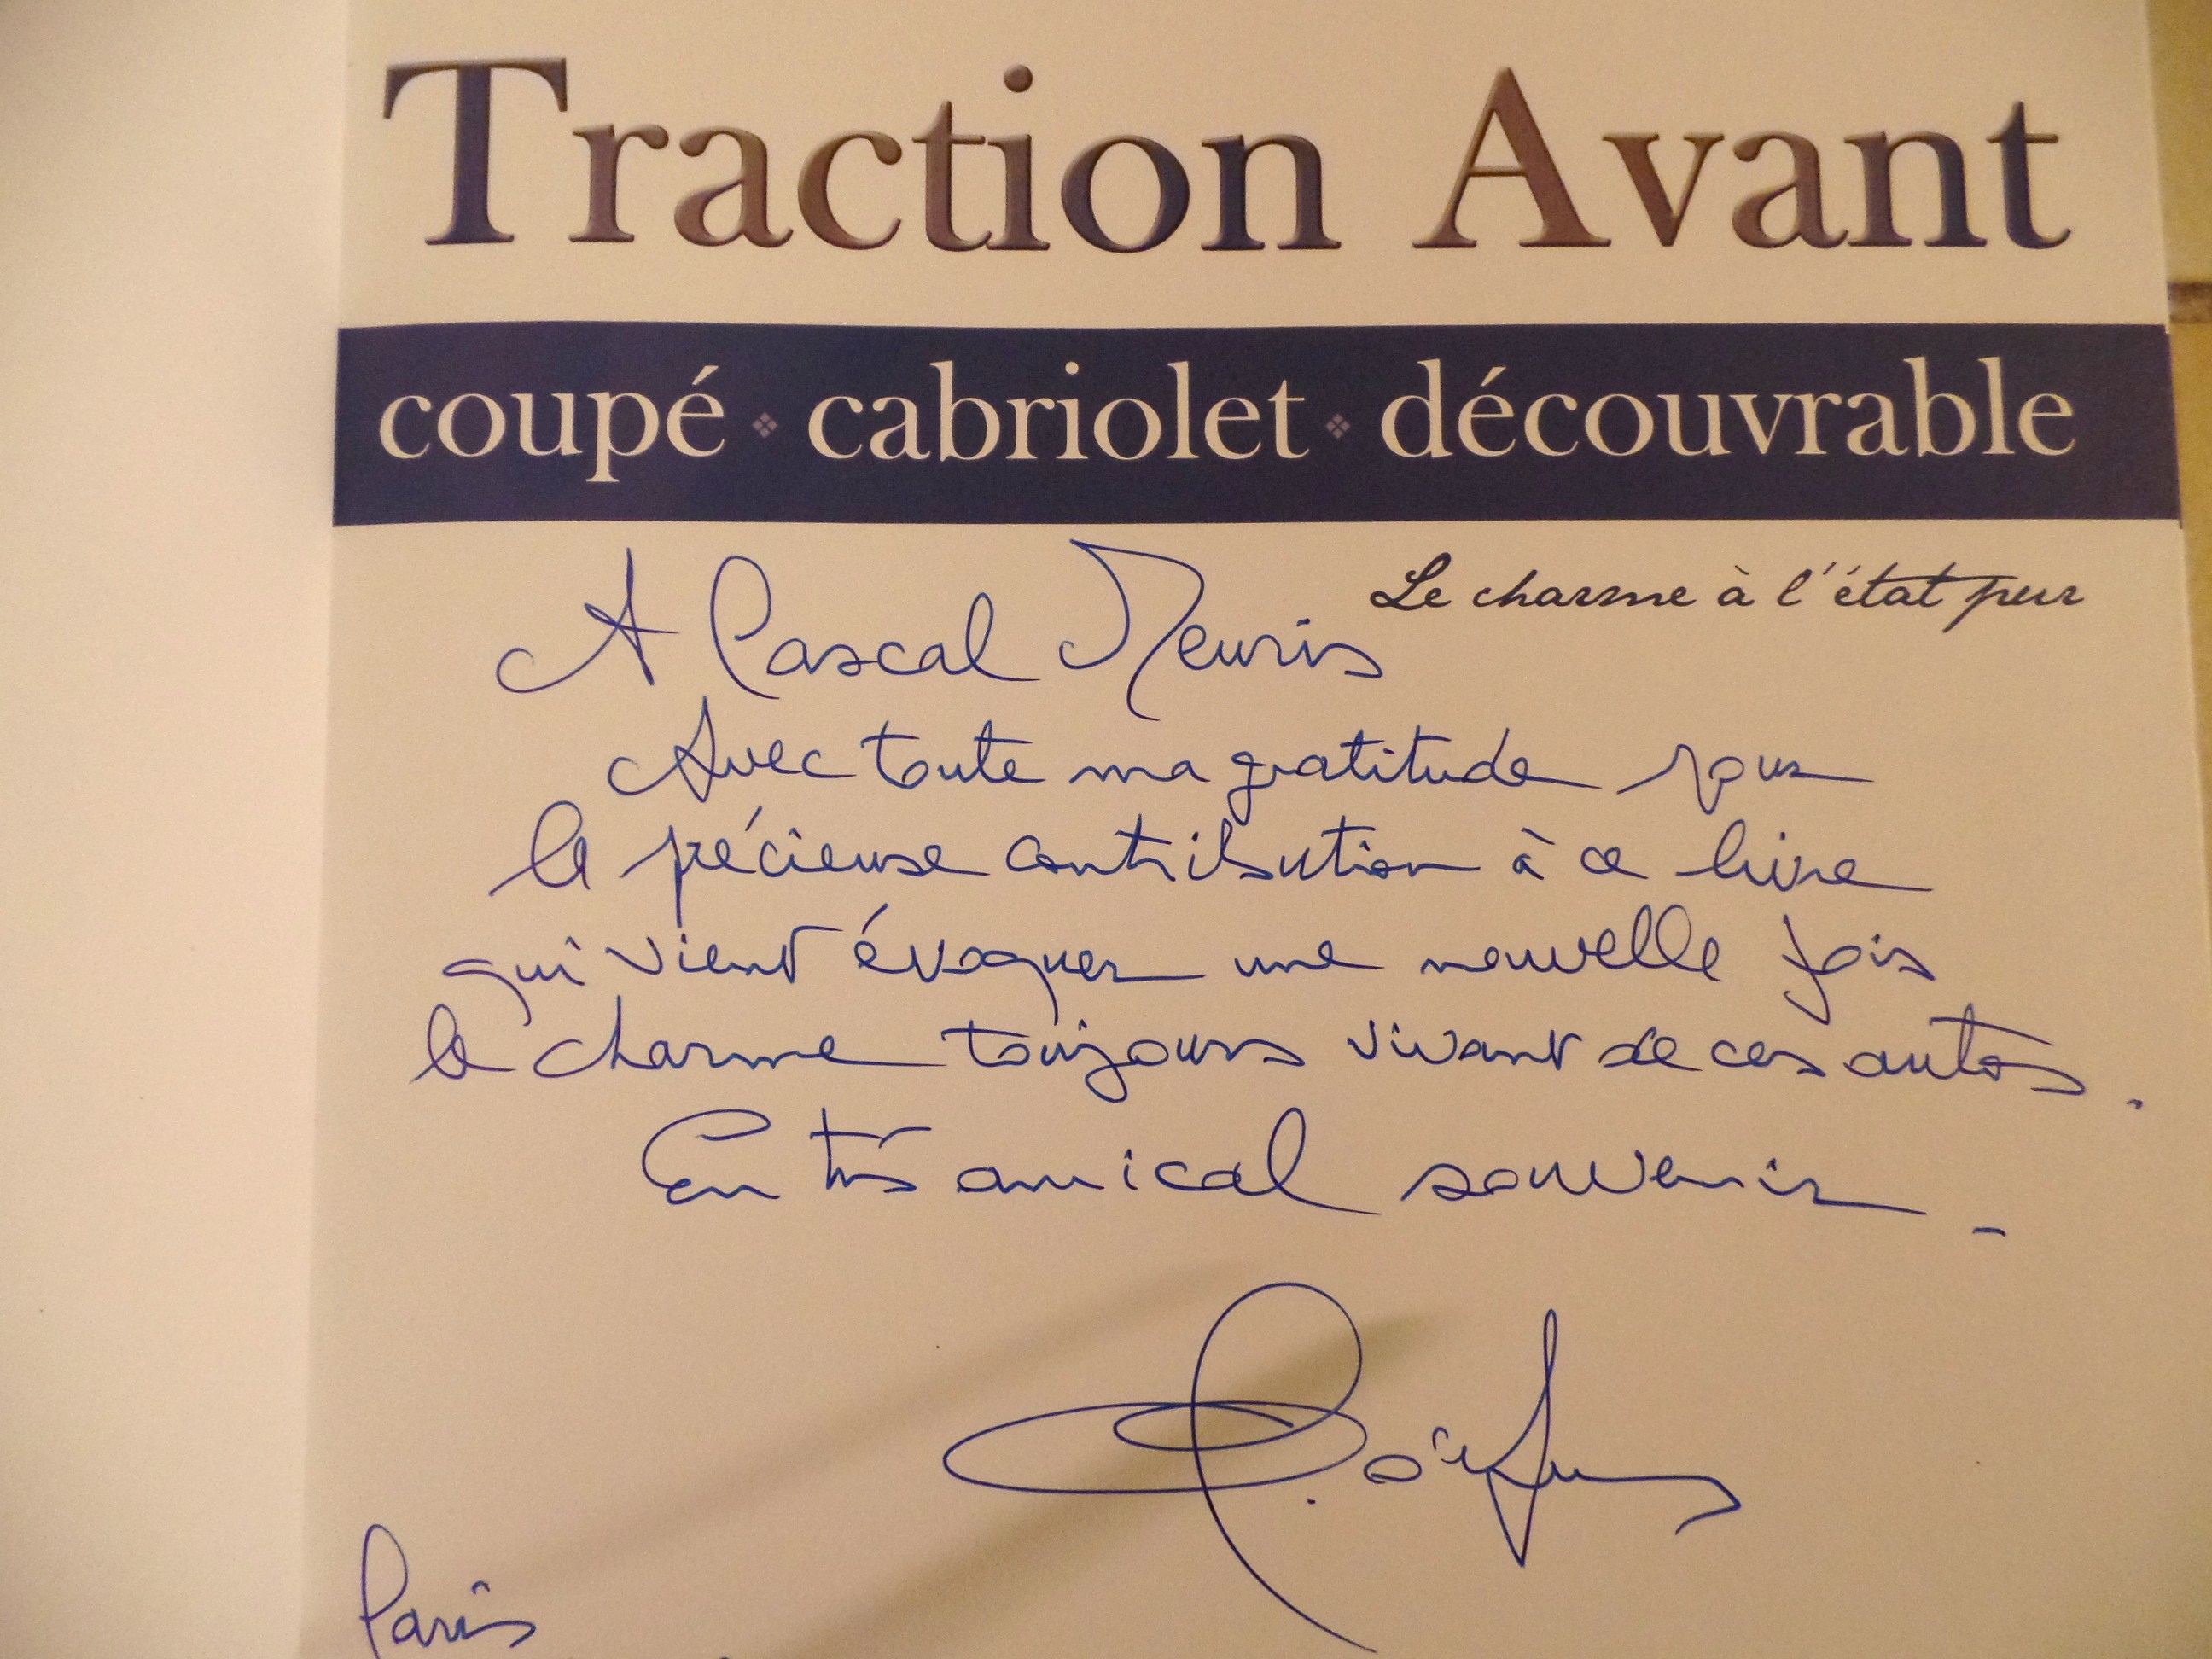 Traction Avant
coupé ❖ cabriolet ❖ découvrable
Le charme à l'état pur
A Pascal Meuris
Avec toute ma gratitude pour
la précieuse contribution à ce livre
qui vient évoquer une nouvelle fois
le charme toujours vivant de ces autos.
En très amical souvenir.
Paris